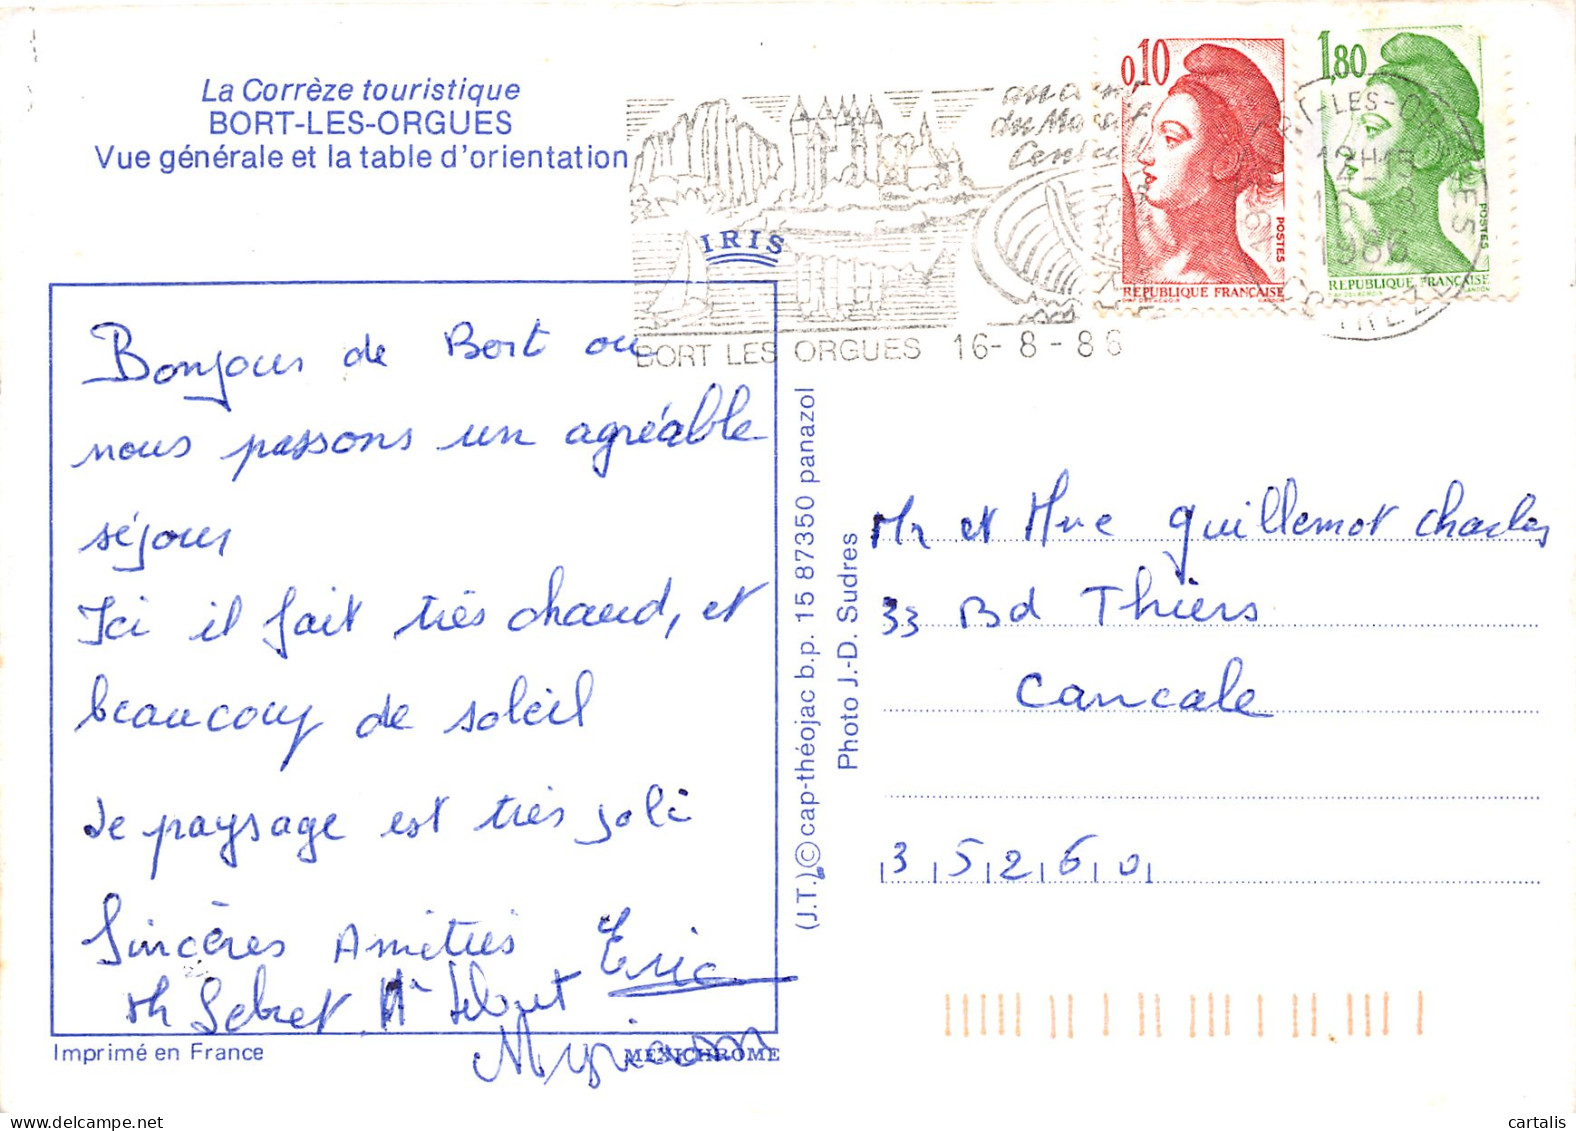 La Corrèze touristique
BORT-LES-ORGUES
Vue générale et la table d'orientation
au cœur
du Massif
Central
IRIS
BORT LES ORGUES 16-8-86
0,10
POSTES
REPUBLIQUE FRANÇAISE
1,80
POSTES
REPUBLIQUE FRANÇAISE
T-LES-OR
12H15
1986
Bonjour de Bort ou
nous passons un agréable
séjour
Ici il fait très chaud, et
beaucoup de soleil
Le paysage est très joli
Sincères Amitiés Eric
Myriam
Imprimé en France
MEXICHROME
(J.T.) © cap-théojac b.p. 15 87350 panazol
Photo J.-D. Sudres
Mr et Mme Guillemot Charles
33 Bd Thiers
Cancale
35260
cartalis